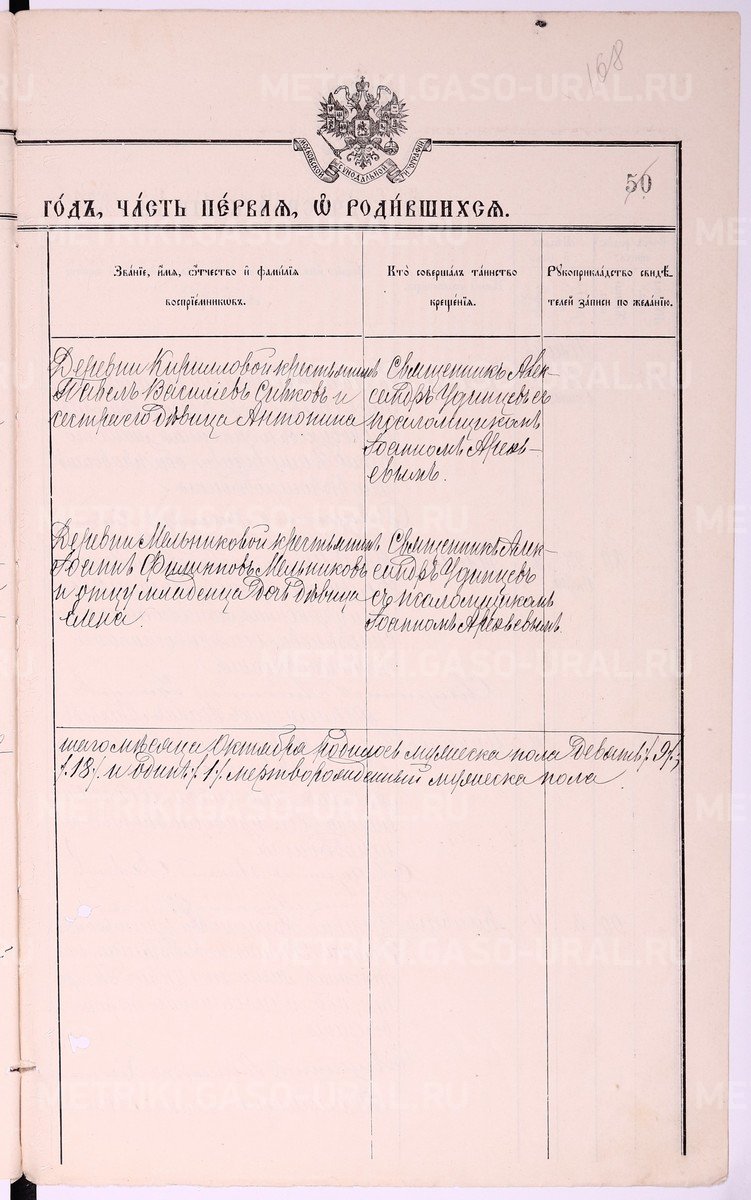 168
МОСКОВСКОЙ СѴНОДАЛЬНОЙ ТИПОГРАФІИ
50
ГО́ДЪ, ЧА́СТЬ ПЕ́РВАЯ, Ѡ҆ РОДИ́ВШИХСЯ.
Зва́нїе, и҆́мя, ѻ҆́тчество и҆ фами́лїя
воспрїе́мниковъ.
Кто̀ соверша́лъ та́инство
креще́нїя.
Рꙋкоприкла́дство свидѣ́-
телей за́писи по жела́нїю.
Деревни Кирилловой крестьянинъ
Павелъ Василіевъ Сивковъ и
сестра его дѣвица Антонина
Священникъ Алек-
сандръ Удинцевъ съ
псаломщикомъ
Іоанномъ Арефь-
евымъ.
Деревни Мельниковой крестьянинъ
Іоаннъ Филипповъ Мельниковъ
и отцу младенца дочь дѣвица
Елена.
Священникъ Алек-
сандръ Удинцевъ
съ псаломщикомъ
Іоанномъ Арефьевымъ.
шаго мѣсяца Октября родилось мужеска пола девять /.9/.,
/.18./ и одинъ /.1./ мертворожденный мужеска пола
METRIKI.GASO-URAL.RU